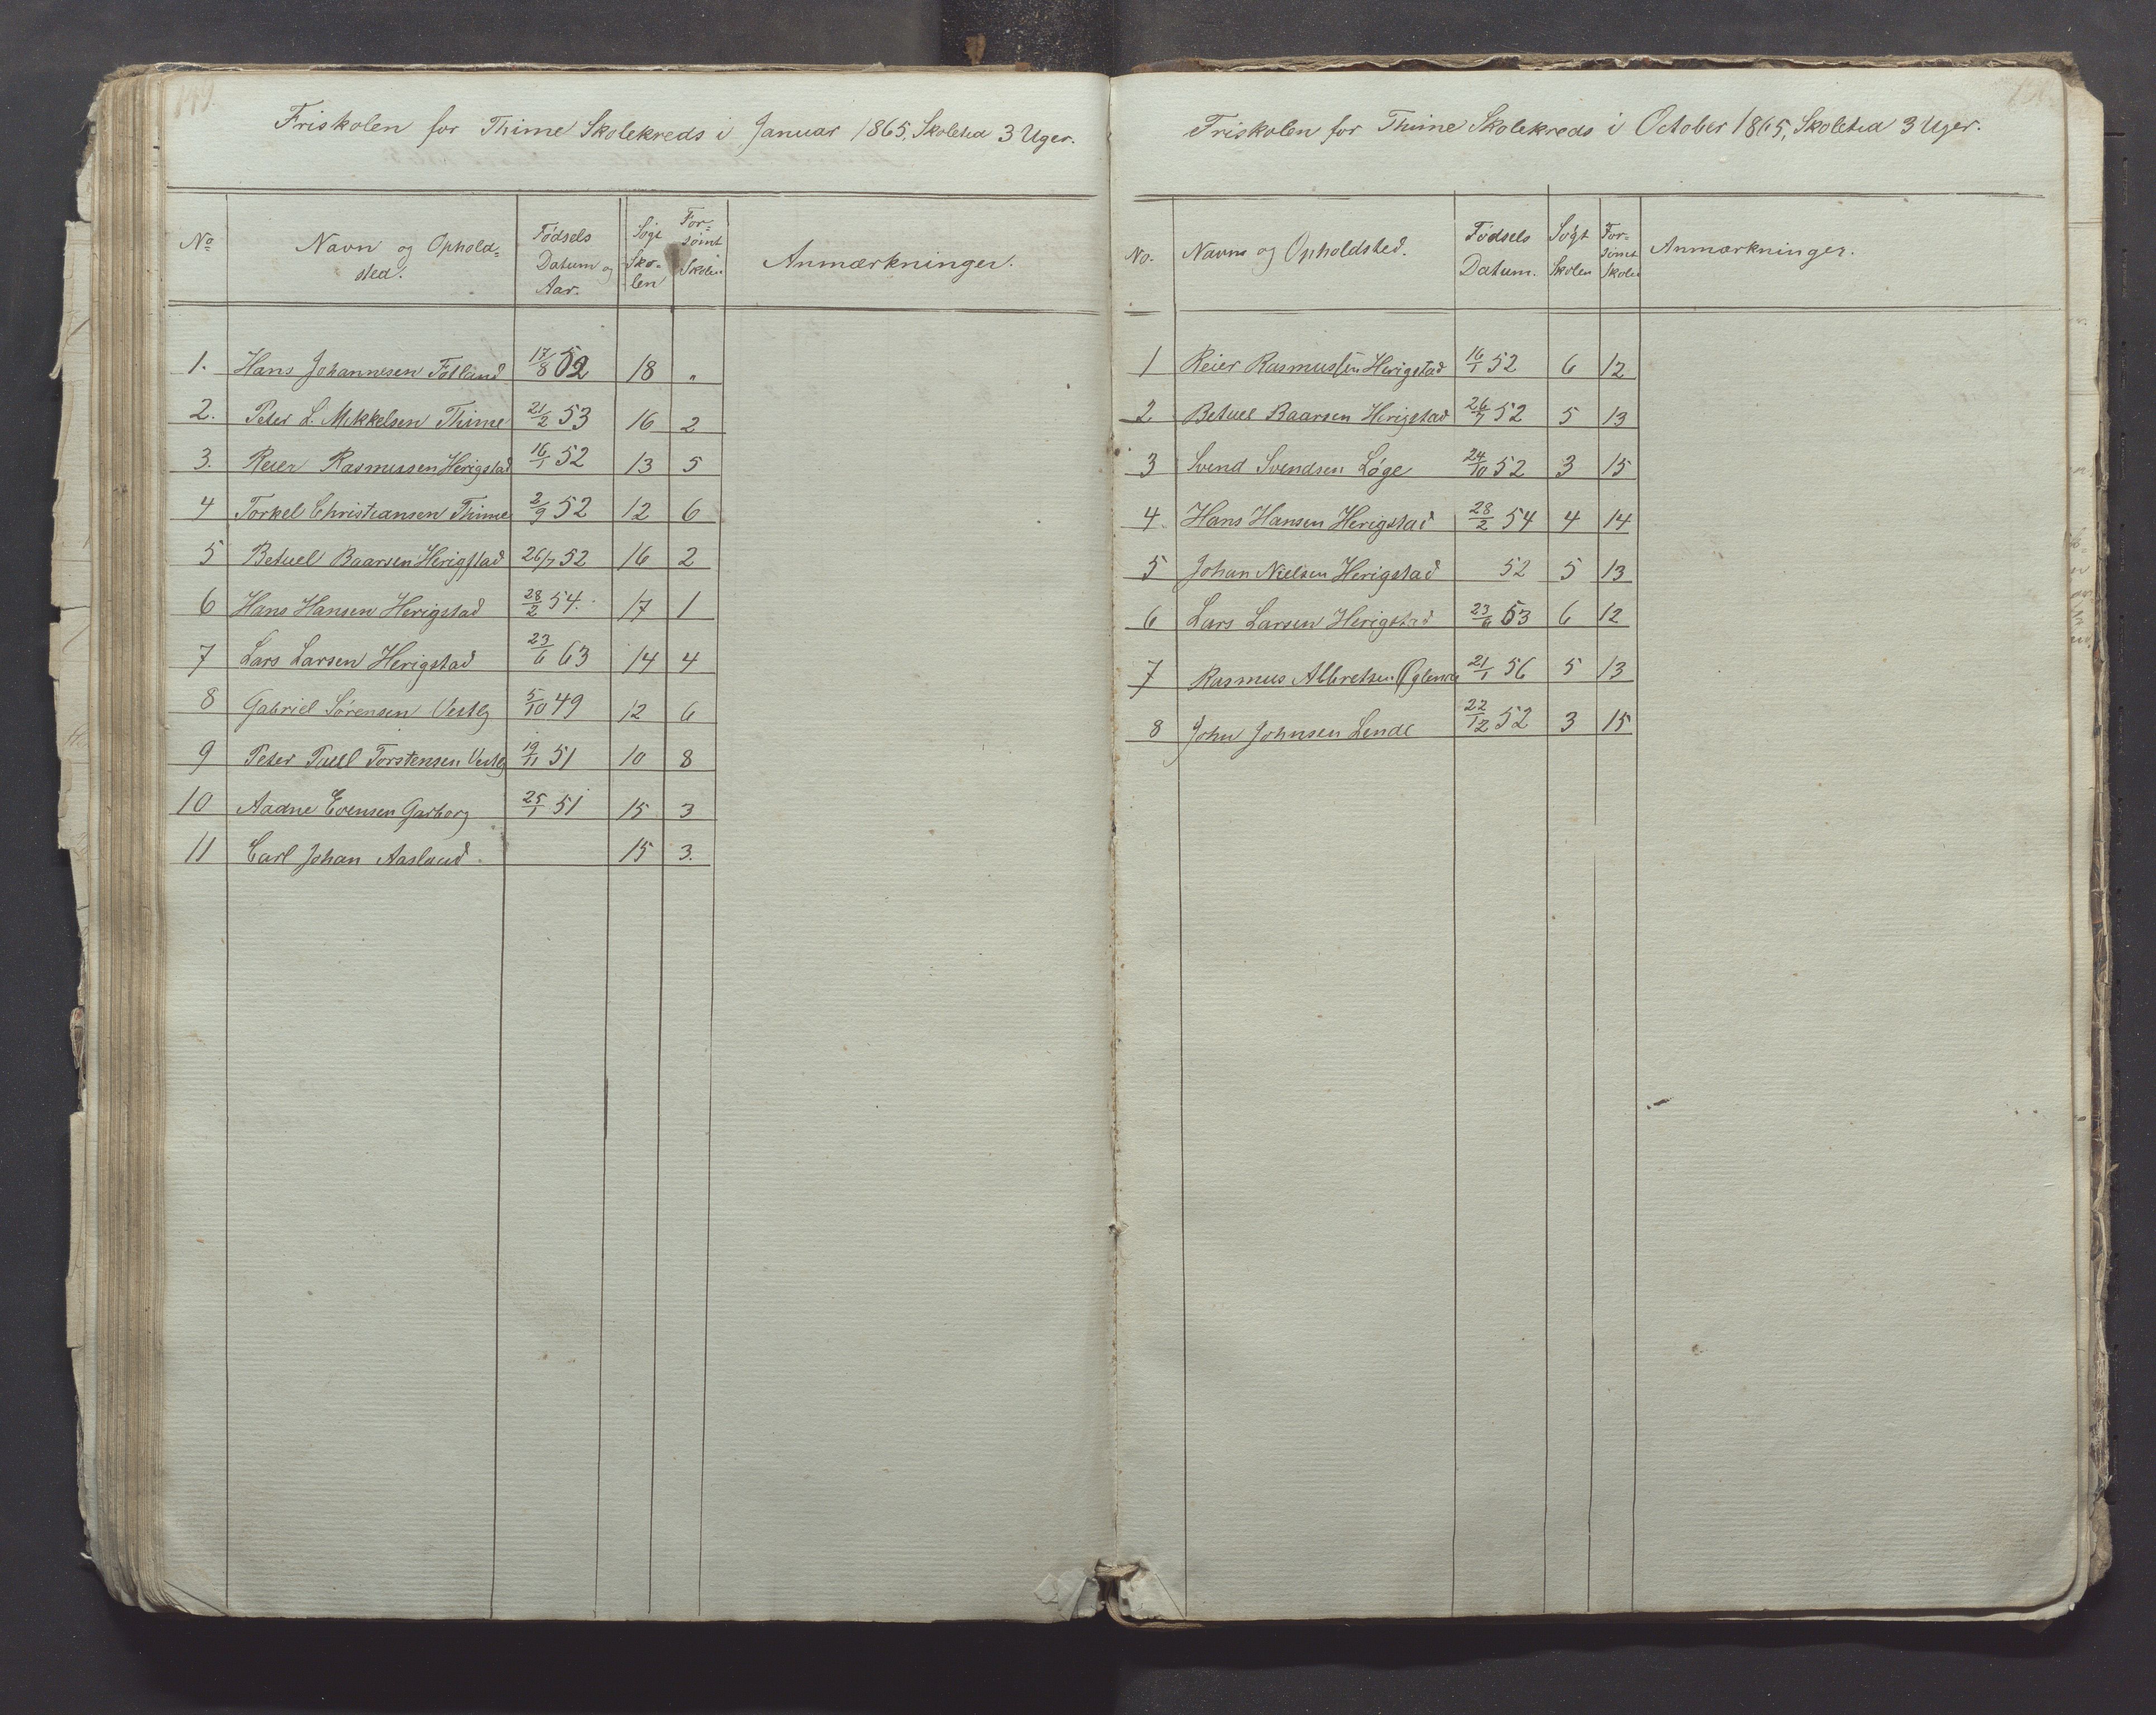 149.
Friskolen for Thime Skolekreds i Januar 1865, Skoletid 3 Uger.
No Navn og Ophold= sted. Fødsels Datum og Aar. Søgt Sko- len For= sömt Skolen Anmærkninger.
1. Hans Johannesen Folland 17/8 52 18 "
2. Peter L. Mikkelsen Thime 21/2 53 16 2
3. Reier Rasmussen Herigstad 16/1 52 13 5
4 Torkel Christiansen Thime 2/9 52 12 6
5 Betuel Baarsen Herigstad 26/7 52 16 2
6 Hans Hansen Herigstad 28/2 54. 17 1
7 Lars Larsen Herigstad 23/6 63 14 4
8 Gabriel Sørensen Vestly 5/10 49 12 6
9 Peter Tuel Torstensen Vestly 19/11 51 10 8
10 Aadne Evensen Garborg 25/1 51 15 3
11 Carl Johan Aaslund 15 3.
Friskolen for Thime Skolekreds i October 1865, Skoletid 3 Uger.
No. Navn og Opholdsted. Fødsels Datum. Søgt Skolen For= sömt Skolen Anmærkninger.
1 Reier Rasmussen Herigstad 16/1 52 6 12
2 Betuel Baarsen Herigstad 26/7 52 5 13
3 Svend Svendsen Løge 24/10 52 3 15
4. Hans Hansen Herigstad 28/2 54 4 14
5 Johan Nielsen Herigstad 52 5 13
6 Lars Larsen Herigstad 23/6 53 6 12
7 Rasmus Albretsen 21/1 56 5 13
8 John Johnsen Lende 22/12 52 3 15